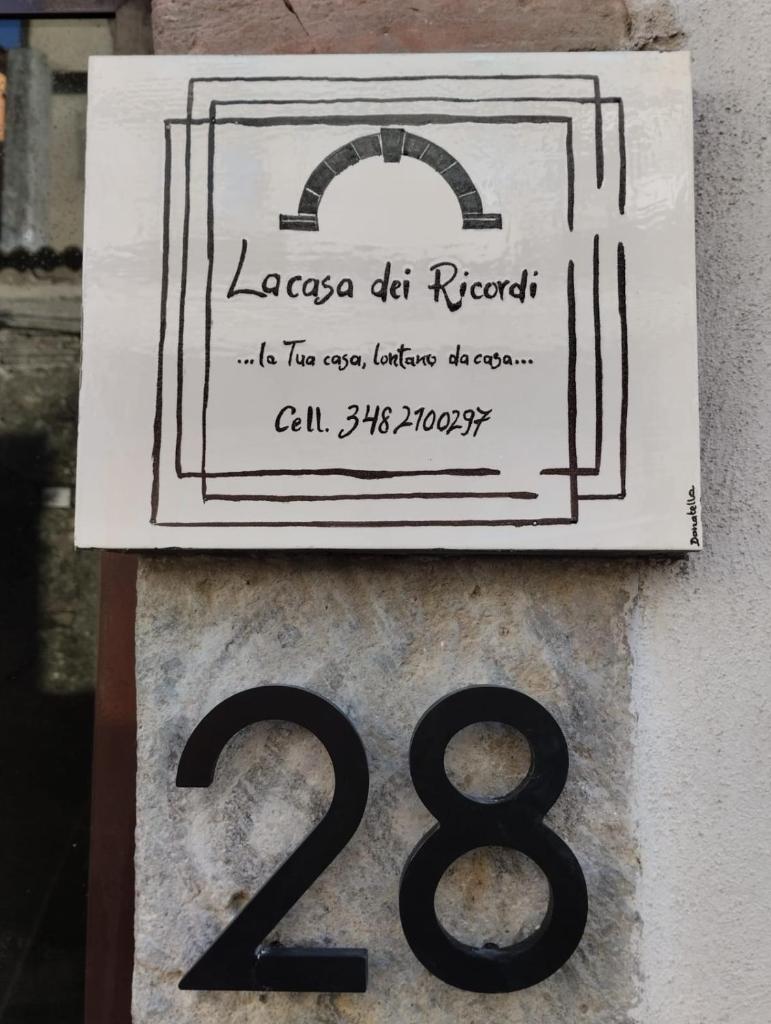 La casa dei Ricordi
...la Tua casa, lontano da casa...
Cell. 3482100297
Donatella
28